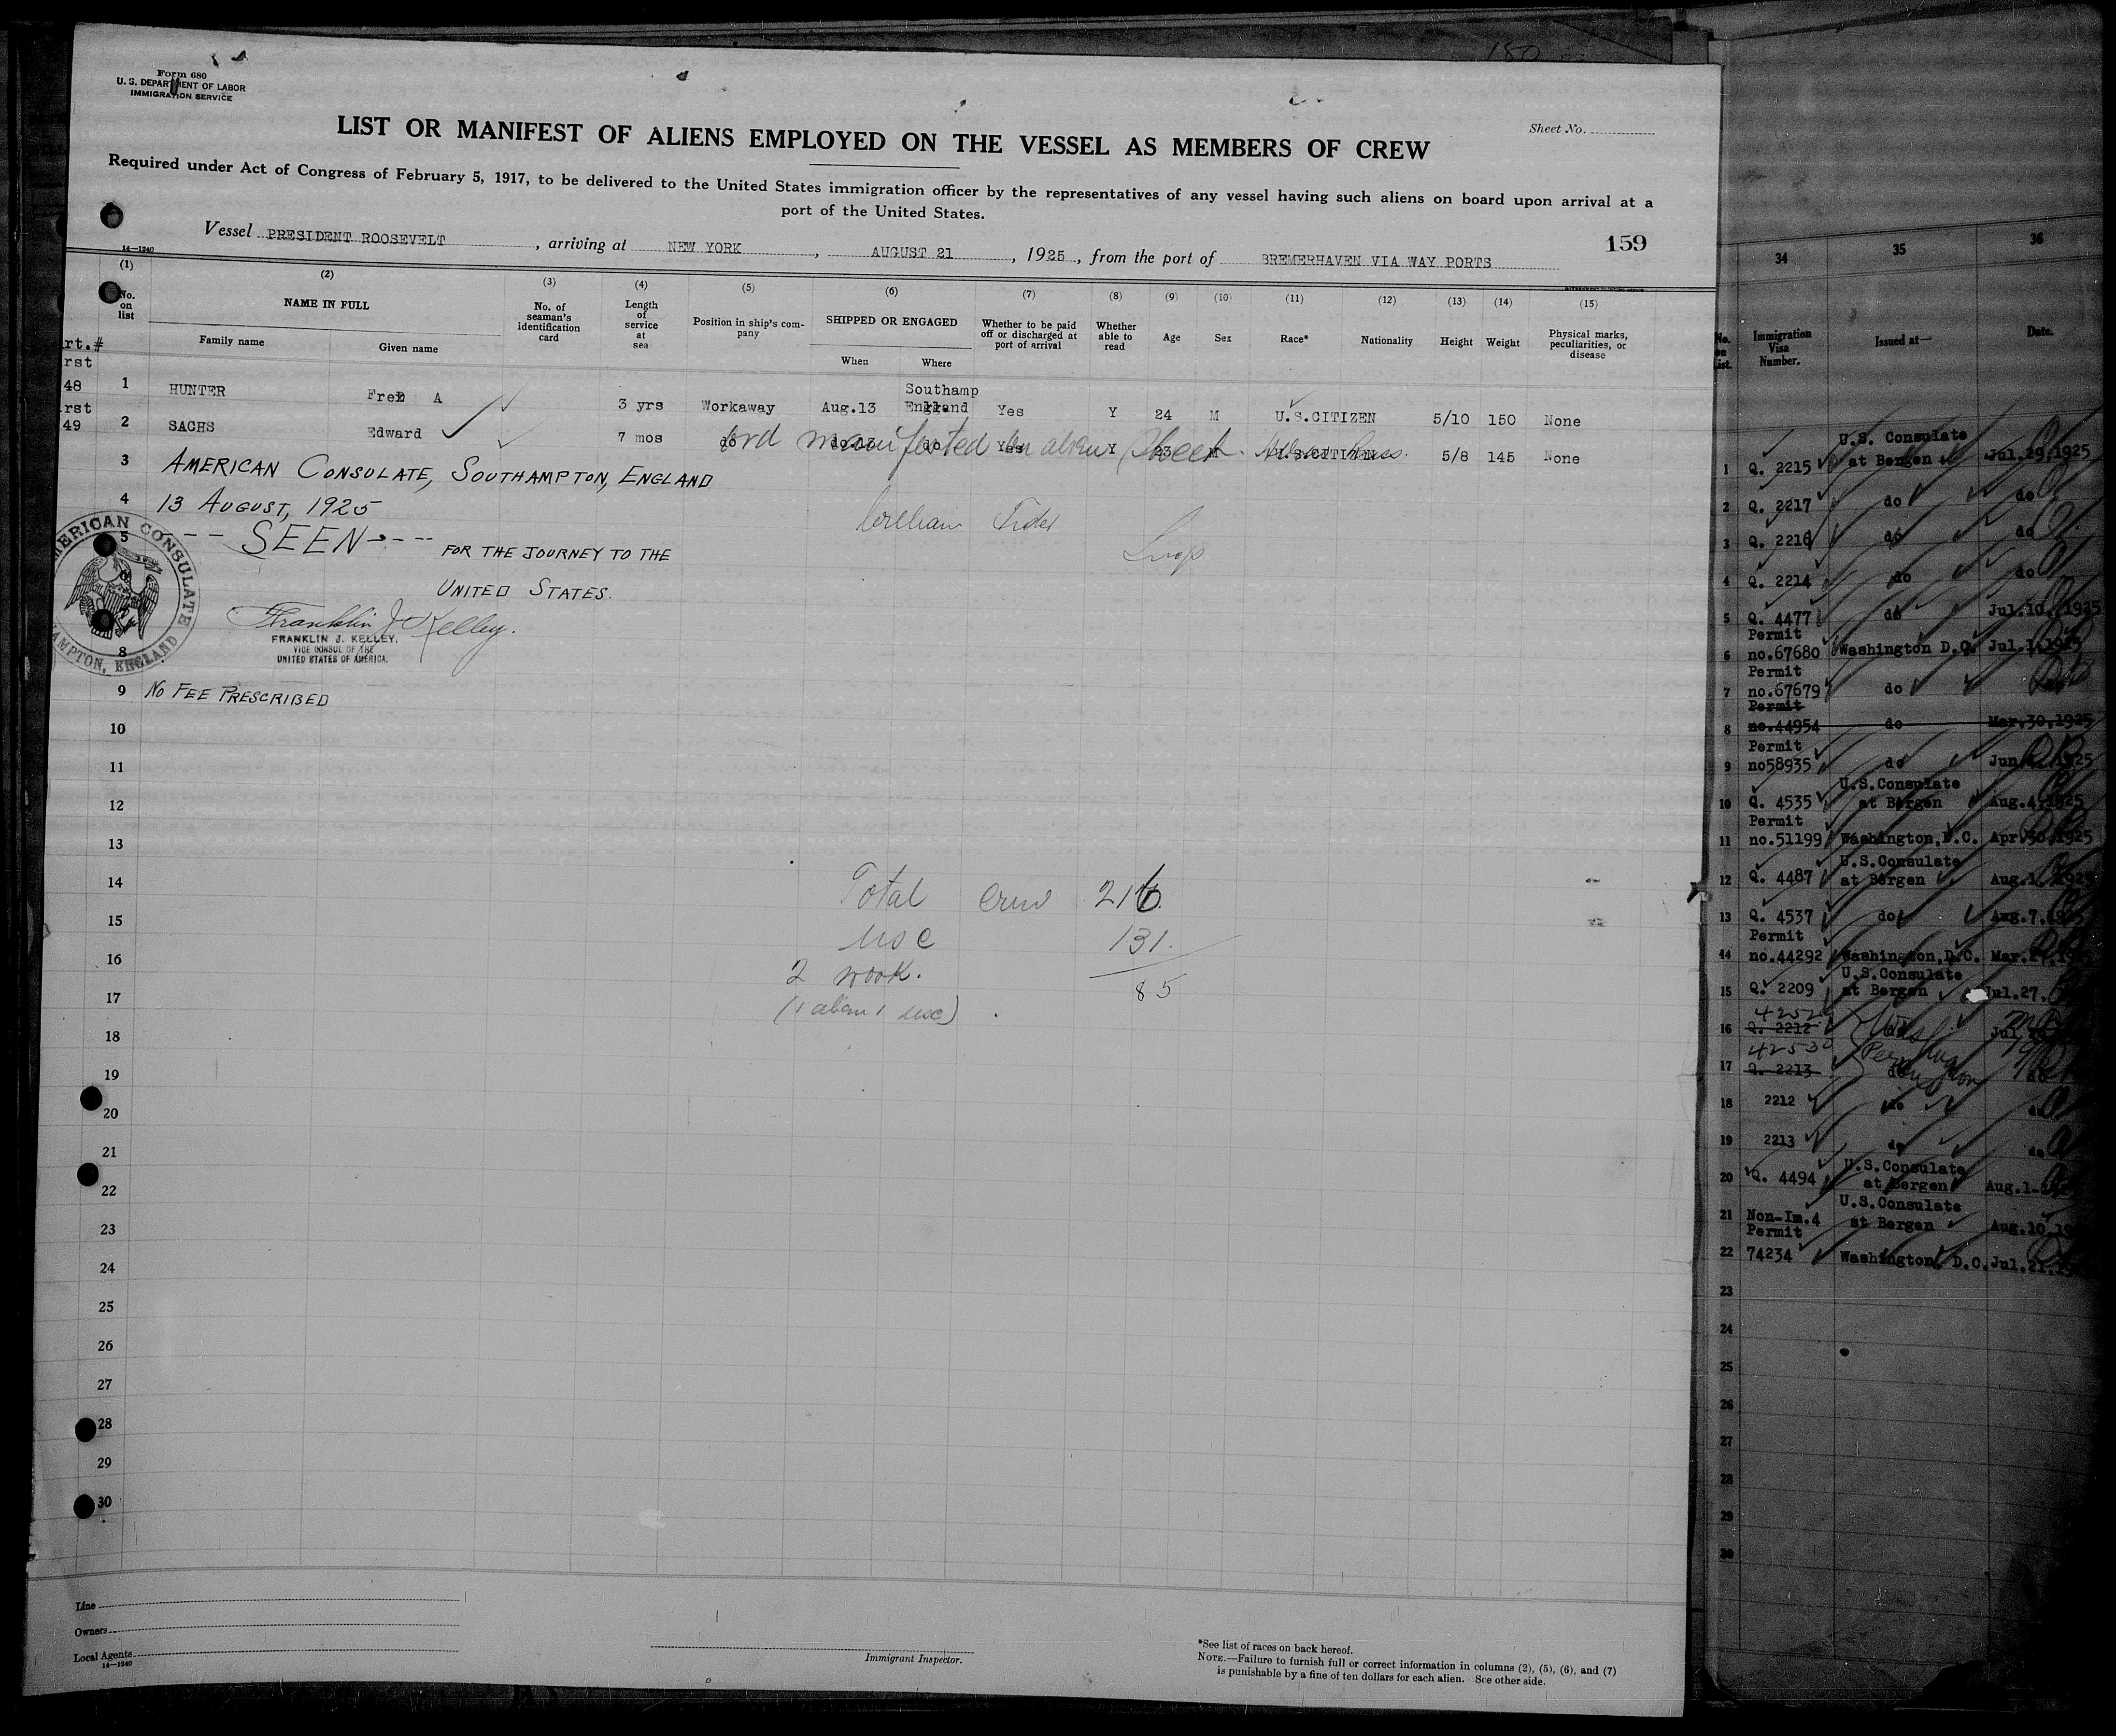 180
Form 680
U. S. DEPARTMENT OF LABOR
IMMIGRATION SERVICE
Sheet No.
LIST OR MANIFEST OF ALIENS EMPLOYED ON THE VESSEL AS MEMBERS OF CREW
Required under Act of Congress of February 5, 1917, to be delivered to the United States immigration officer by the representatives of any vessel having such aliens on board upon arrival at a
port of the United States.
Vessel PRESIDENT ROOSEVELT, arriving at NEW YORK, AUGUST 21, 1925, from the port of BREMERHAVEN VIA WAY PORTS
159
14—1240
(1) (2) (3) (4) (5) (6) (7) (8) (9) (10) (11) (12) (13) (14) (15)
No. on list
NAME IN FULL
Family name Given name
No. of seaman's identification card
Length of service at sea
Position in ship's company
SHIPPED OR ENGAGED
When Where
Whether to be paid off or discharged at port of arrival
Whether able to read
Age Sex Race* Nationality Height Weight
Physical marks, peculiarities, or disease
rt.#
rst
48 1 HUNTER Fred A 3 yrs Workaway Aug.13 Southamp England Yes Y 24 M U.S.CITIZEN 5/10 150 None
rst
49 2 SACHS Edward 7 mos do do 13 do Yes Y 23 M U.S.CITIZEN 5/8 145 None
manifested on alien sheet.
3 AMERICAN CONSULATE, SOUTHAMPTON, ENGLAND
4 13 AUGUST, 1925
5 -- SEEN ---- FOR THE JOURNEY TO THE
UNITED STATES.
William
Insp
AMERICAN CONSULATE
AMPTON, ENGLAND
Franklin J Kelley.
FRANKLIN J. KELLEY,
VICE CONSUL OF THE
UNITED STATES OF AMERICA.
8
9 NO FEE PRESCRIBED
10
11
12
13
14 Total Crew 216
15 USC 131.
16 2 work.
85
17 (1 alien 1 usc)
18
19
20
21
22
23
24
25
26
27
28
29
30
Line
Owners
Local Agents
14—1240
Immigrant Inspector.
*See list of races on back hereof.
NOTE.—Failure to furnish full or correct information in columns (2), (5), (6), and (7)
is punishable by a fine of ten dollars for each alien. See other side.
34 35 36
No. on List.
Immigration Visa Number.
Issued at—
Date.
1 Q. 2215 U.S. Consulate at Bergen Jul.29,1925
2 Q. 2217 do do
3 Q. 2216 do do
4 Q. 2214 do do
5 Q. 4477 do Jul.10,1925
6 Permit no.67680 Washington D.C. Jul.1,1925
7 Permit no.67679 do
8 Permit no.44954 do Mar.30,1925
9 Permit no58935 do Jun 1925
10 Q. 4535 U.S.Consulate at Bergen Aug.4,1925
11 Permit no.51199 Washington,D.C. Apr.30,1925
12 Q. 4487 U.S.Consulate at Bergen Aug.1,1925
13 Q. 4537 do Aug.7,
14 Permit no.44292 Washington,D.C. Mar.
15 Q. 2209 U.S.Consulate at Bergen Jul.27,
4252
16 Q. 2212 do Jul.
42530
17 Q. 2213 do
18 2212 do do
19 2213 do do
20 Q. 4494 U.S.Consulate at Bergen Aug.1
21 Non-Im.4 U.S.Consulate at Bergen Aug.10,19
22 Permit 74234 Washington D.C. Jul.21,
23
24
25
26
27
28
29
30